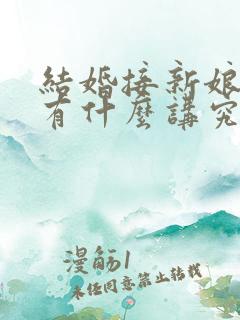 結婚接新娘
有什麼講究
漫觞1
未经同意禁止转载